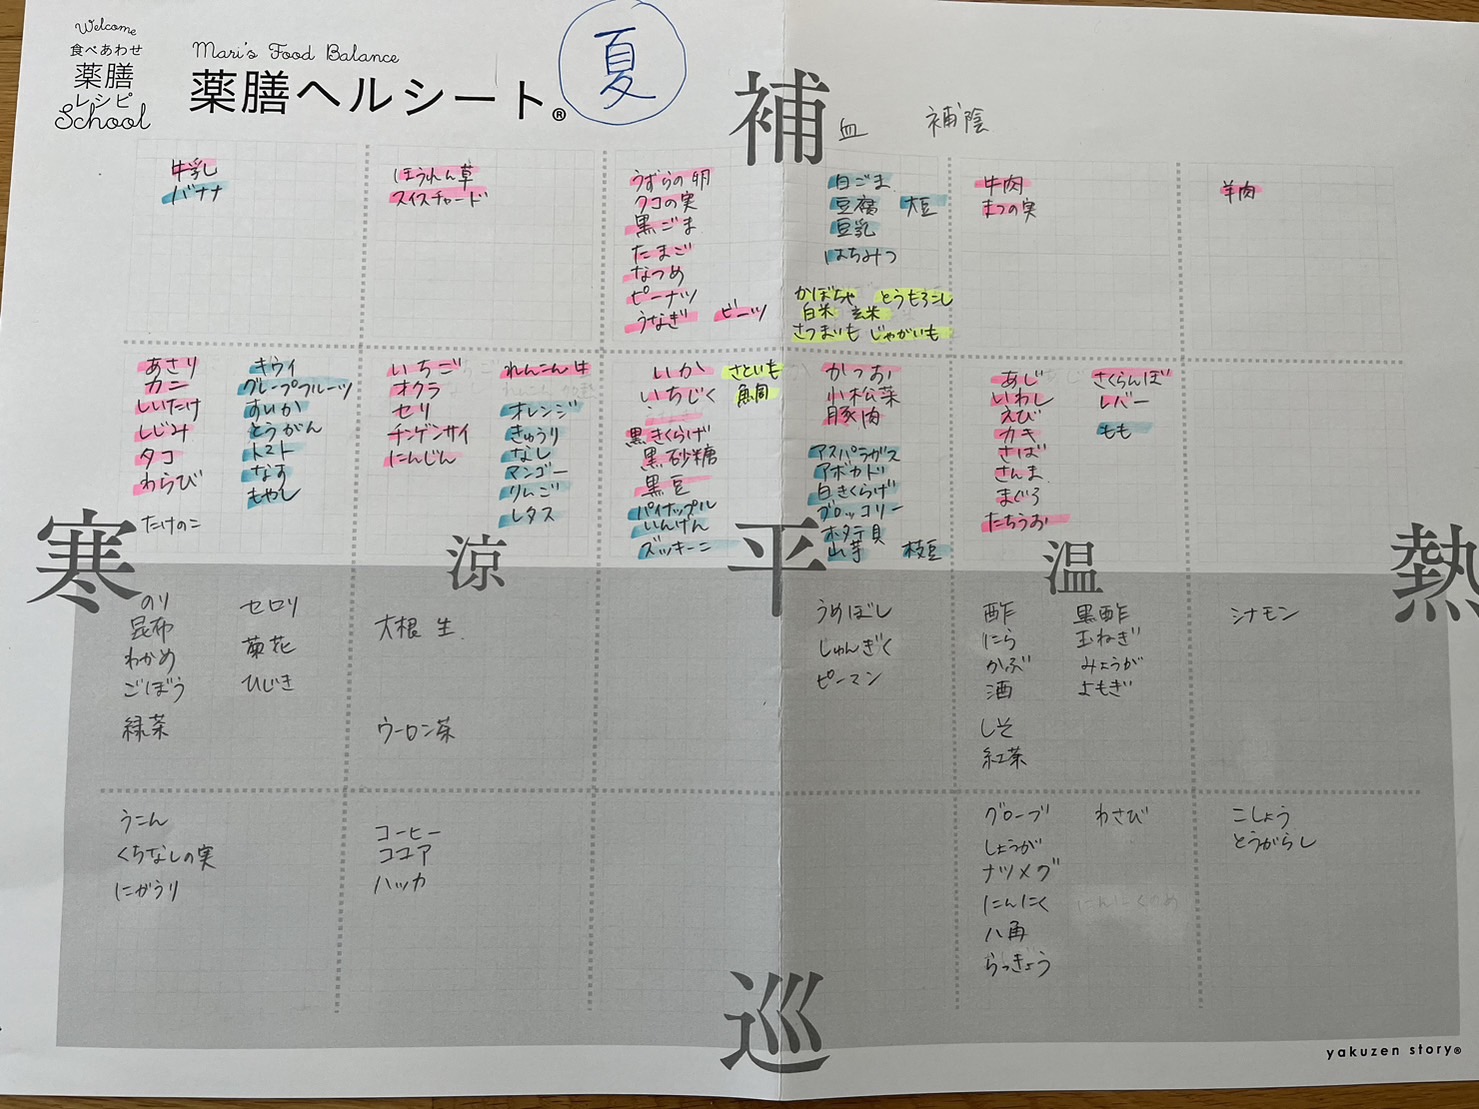 Welcome
食べあわせ
薬膳
レシピ
School
Mari's Food Balance
薬膳ヘルシート®
夏
補
血 補陰
牛乳
バナナ
ほうれん草
スイスチャード
うずらの卵
クコの実
黒ごま
たまご
なつめ
ピーナツ
うなぎ ビーツ
白ごま
豆腐 大豆
豆乳
はちみつ
かぼちゃ とうもろこし
白米 玄米
さつまいも じゃがいも
牛肉
まつの実
羊肉
あさり
カニ
しいたけ
しじみ
タコ
わらび
たけのこ
キウイ
グレープフルーツ
すいか
とうがん
トマト
なす
もやし
いちご
オクラ
セリ
チンゲンサイ
にんじん
れんこん 生
オレンジ
きゅうり
なし
マンゴー
りんご
レタス
いか
いちじく
黒きくらげ
黒砂糖
黒豆
パイナップル
いんげん
ズッキーニ
さといも
魚同
かつお
小松菜
豚肉
アスパラガス
アボカド
白きくらげ
ブロッコリー
ホタテ貝
山芋 枝豆
あじ
いわし
えび
カキ
さば
さんま
まぐろ
たちうお
さくらんぼ
レバー
もも
寒
涼
平
温
熱
のり
昆布
わかめ
ごぼう
緑茶
セロリ
菊花
ひじき
大根 生
ウーロン茶
うめぼし
しゅんぎく
ピーマン
酢
にら
かぶ
酒
しそ
紅茶
黒酢
玉ねぎ
みょうが
よもぎ
シナモン
うこん
くちなしの実
にがうり
コーヒー
ココア
ハッカ
グローブ
しょうが
ナツメグ
にんにく
八角
らっきょう
わさび
こしょう
とうがらし
巡
yakuzen story®